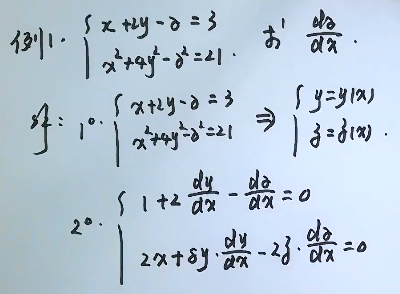 例1. { x + 2y - z = 3
x² + 4y² - z² = 21 . 求 dz/dx .
解: 1°. { x + 2y - z = 3
x² + 4y² - z² = 21 ⇒ { y = y(x)
z = z(x) .
2°. { 1 + 2 dy/dx - dz/dx = 0
2x + 8y · dy/dx - 2z · dz/dx = 0